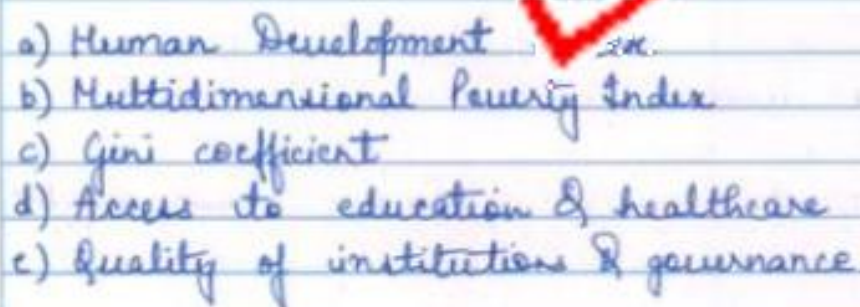 a) Human Development
b) Multidimensional Poverty Index
c) Gini coefficient
d) Access to education & healthcare
e) Quality of institutions & governance